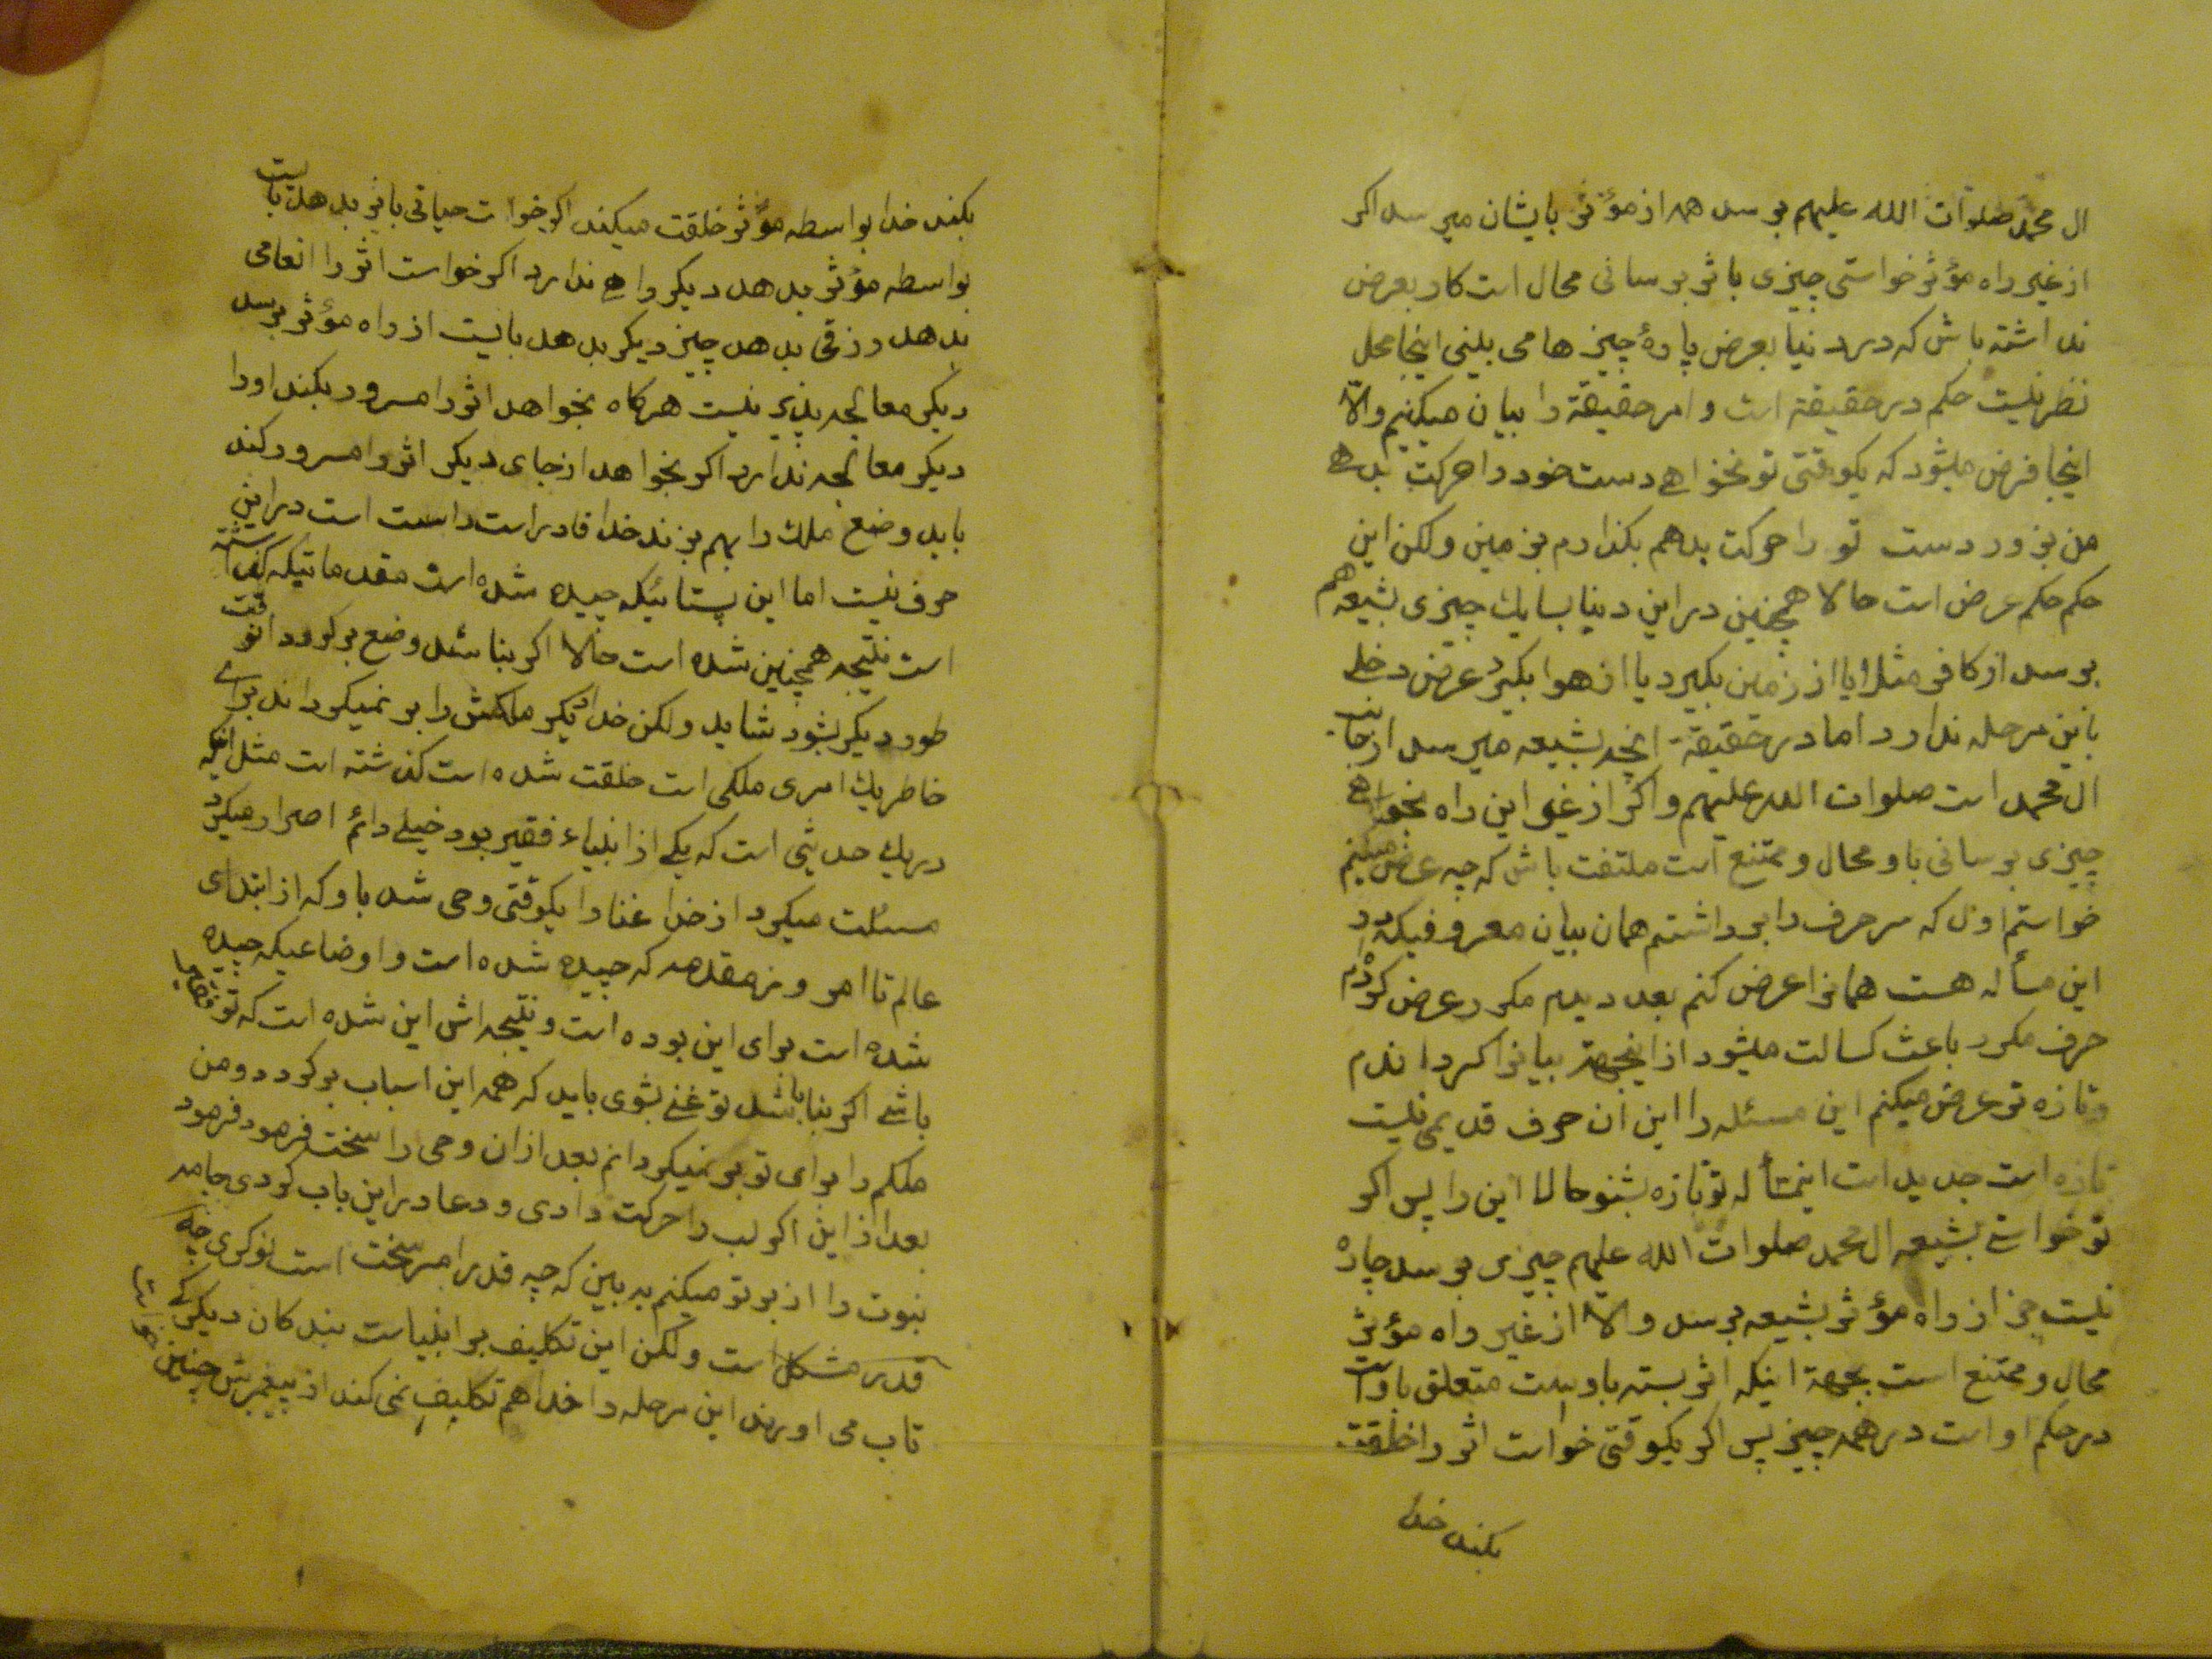 ال محمد صلوات الله علیهم برسد همه از مؤثر بایشان میرسد اکر
از غیر راه مؤثر خواستی چیزی باثر برسانی محال است کار بعرض
نداشته باش که در دنیا بعرض پارهٔ چیزها می بینی اینجا محل
نظر نیست حکم در حقیقة است و امر حقیقة را بیان میکنیم والّا
اینجا فرض میشود که یکوقتی تو نخواهی دست خود را حرکت بدهی
من بزور دست تو را حرکت بدهم بکذارم بزمین ولکن این
حکم حکم عرض است حالا همچنین در این دنیا بسا یک چیزی بشیعه هم
برسد از کافر مثلا یا از زمین بکیرد یا از هوا بکیرد عرض دخلی
باین مرحله ندارد اما در حقیقة انچه بشیعه میرسد از جانب
ال محمد است صلوات الله علیهم و اکر از غیر این راه بخواهی
چیزی برسانی باو محال و ممتنع است ملتفت باش که چه عرض میکنم
خواستم اول که سر حرف را برداشتم همان بیان معروفیکه در
این مسأله هست همانرا عرض کنم بعد دیدم مکرر عرض کردم
حرف مکرر باعث کسالت میشود از اینجهة بیانرا کرداندم
و تازه تر عرض میکنم این مسئله را این ان حرف قدیمی نیست
تازه است جدید است اینمسأله تو تازه بشنو حالا این را پس اکر
تو خواستی بشیعه ال محمد صلوات الله علیهم چیزی برسد چارهٔ
نیست جز از راه مؤثر بشیعه برسد والا از غیر راه مؤثر
محال و ممتنع است بجهة اینکه اثر بسته باوست متعلق باوست
در حکم او است در همه چیز پس اکر یکوقتی خواست اثر را خلقت
بکند خدا
بکند خدا بواسطه مؤثر خلقت میکند اکر خواست حیاتی باثر بدهد بایست
بواسطه مؤثر بدهد دیکر راهی ندارد اکر خواست اثر را انعامی
بدهد رزقی بدهد چیز دیکر بدهد بایست از راه مؤثر برسد
دیکر معالجه پذیر نیست هرکاه بخواهد اثر را مسرور بکند او را
دیکر معالجه ندارد اکر بخواهد از جای دیکر اثر را مسرور کند
باید وضع ملک را بهم بزند خدا قادر است راست است در این
حرف نیست اما این بستائیکه چیده شده است مقدماتیکه کذاشته
است نتیجه همچنین شده است حالا اکر بنا شد وضع برکردد انوقت
طور دیکر بشود شاید ولکن خدا دیکر ملکش را بر نمیکرداند برای
خاطر یک امری ملکی است خلقت شده است کذشته است مثل اینکه
در یک حدیثی است که یکی از انبیاء فقیر بود خیلی دائم اصرار میکرد
مسئلت میکرد از خدا غنا را یکوقتی وحی شد باو که از ابتدای
عالم تا امروز مقدمه که چیده شده است و اوضاعیکه چیده
شده است برای این بوده است و نتیجه اش این شده است که تو فقیر
باشی اکر بنا باشد تو غنی بشوی باید که همه این اسباب برکردد و من
ملکم را برای تو بر نمیکردانم بعد از ان وحی را سخت فرمود فرمود
بعد از این اکر لب را حرکت دادی و دعا در این باب کردی جامه
نبوت را از بر تو میکنم به بین که چه قدر امر سخت است نوکری چه
قدر مشکل است ولکن این تکلیف بر انبیاست بندکان دیکر کی
تاب می اورند این مرحله را خدا هم تکلیف نمی کند از پیغمبرش چنین خواسته